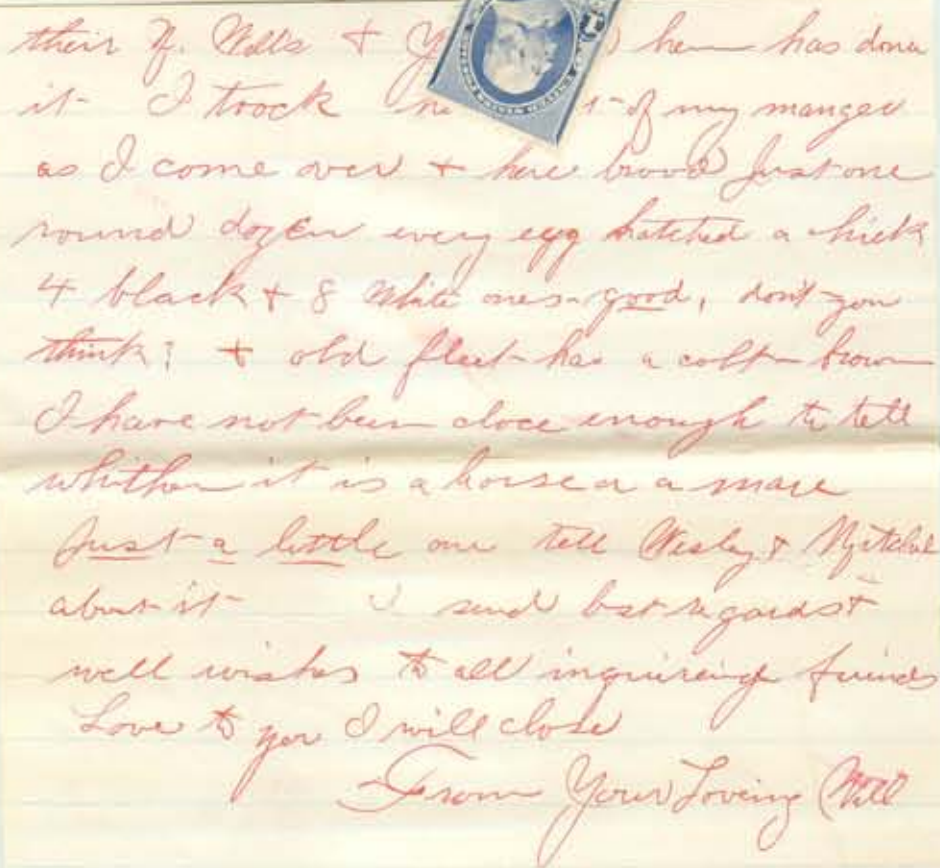 their Y. Wells & Y hen has done
it I toock of my manger
as I come over & here brood Just one
round dozen every egg hatched a chick
4 black & 8 white ones good, don't you
think? & old fleet has a colt brown
I have not been close enough to tell
whither it is a horse or a mare
Just a little one tell Wesley & Mitchel
about it I send best regards &
well wishes to all inquireing friends
Love to you I will close
From Your Loveing Will